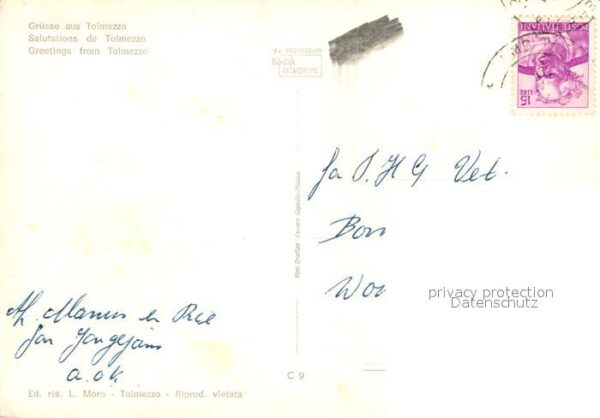 Grüsse aus Tolmezzo
Salutations de Tolmezzo
Greetings from Tolmezzo
Kodak
EKTACHROME
POSTE ITALIANE
LIRE
15
fa P. H G Vet.
Bon
Wou
privacy protection
Datenschutz
Marius en Riel
Jan Jongejans
a.ok
C 9
Ed. ris. L. Moro - Tolmezzo - Riprod. vietata